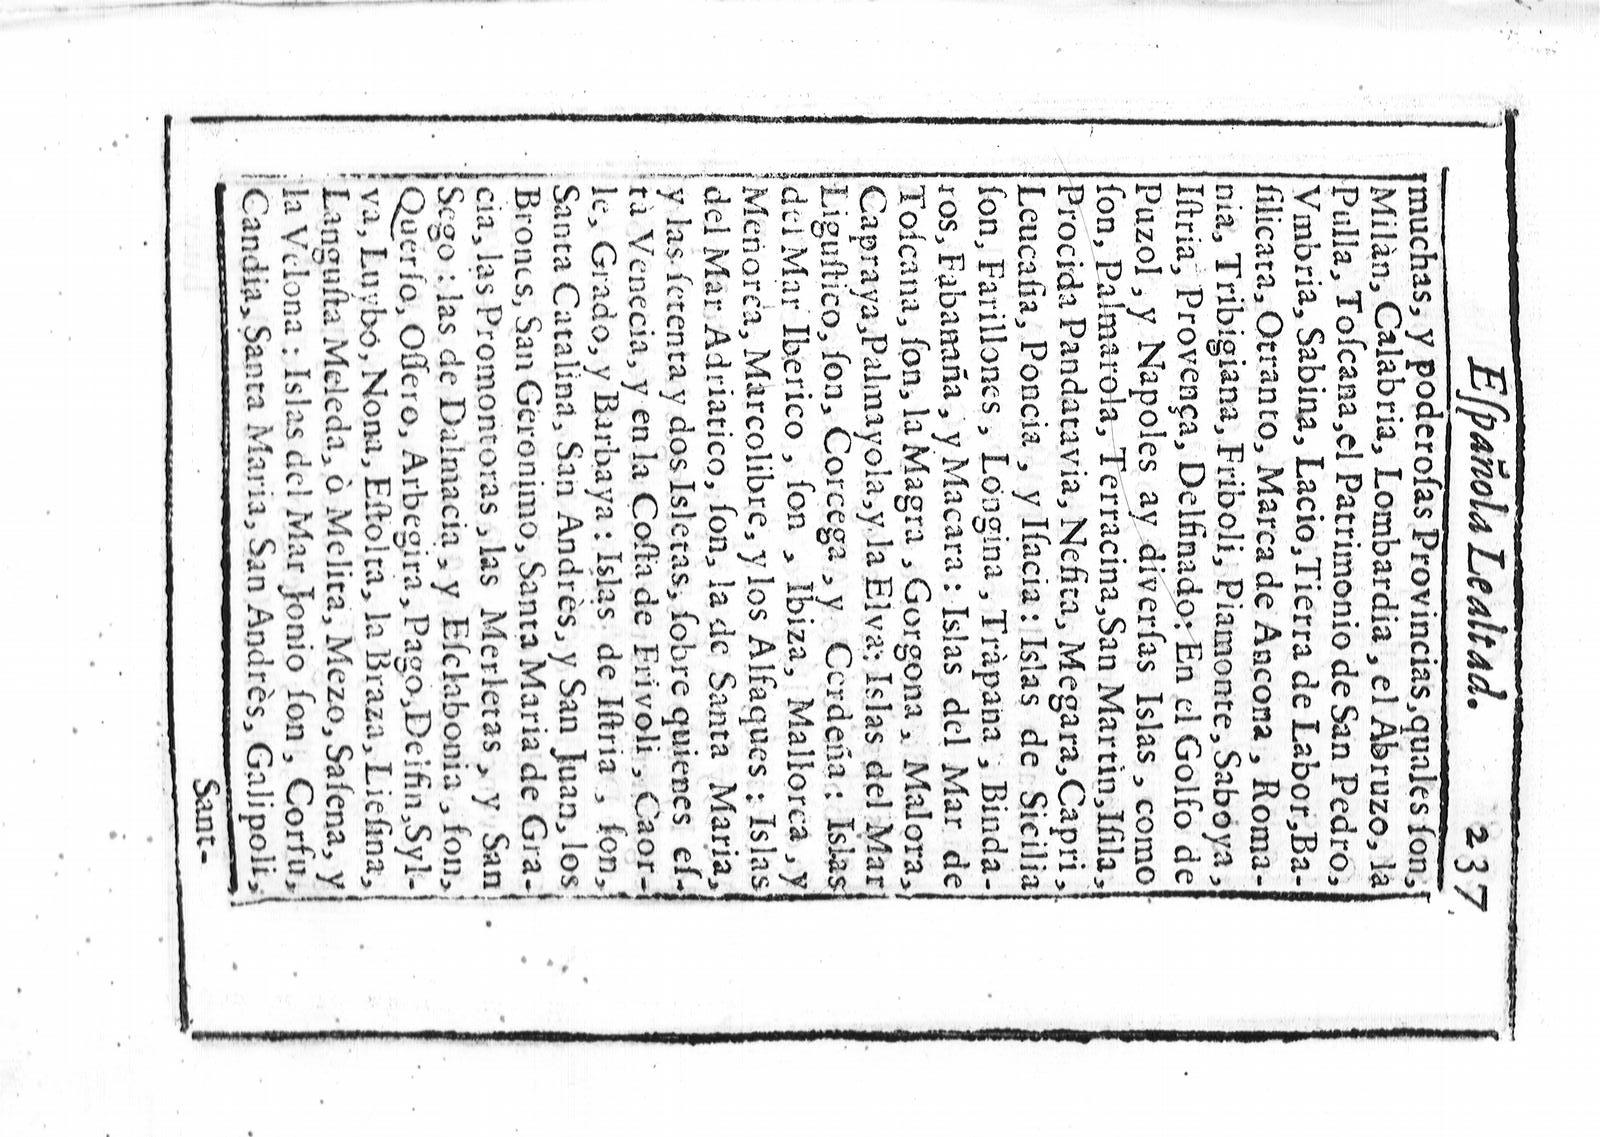 Eſpañola Lealtad. 237
muchas, y poderoſas Provincias, quales ſon,
Milàn, Calabria, Lombardia, el Abruzo, la
Pulla, Toſcana, el Patrimonio de San Pedro,
Vmbria, Sabina, Lacio, Tierra de Labor, Ba-
ſilicata, Otranto, Marca de Ancona, Roma-
nia, Tribigiana, Friboli, Piamonte, Saboya,
Iſtria, Provença, Delfinado: En el Golfo de
Puzol, y Napoles ay diverſas Islas, como
ſon, Palmarola, Terracina, San Martin, Iſila,
Procida Pandatavia, Neſita, Megara, Capri,
Leucaſia, Poncia, y Iſacia: Islas de Sicilia
ſon, Farillones, Longina, Tràpana, Binda-
ros, Fabamaña, y Macara: Islas del Mar de
Toſcana, ſon, la Magra, Gorgona, Malora,
Capraya, Palmayola, y la Elva: Islas del Mar
Liguſtico, ſon, Corcega, y Cerdeña: Islas
del Mar Iberico, ſon, Ibiza, Mallorca, y
Menorca, Marcolibre, y los Alfaques: Islas
del Mar Adriatico, ſon, la de Santa Maria,
y las ſetenta y dos Isletas, ſobre quienes eſ-
tà Venecia, y en la Coſta de Frivoli, Caor-
le, Grado, y Barbaya: Islas de Iſtria, ſon,
Santa Catalina, San Andrès, y San Juan, los
Brones, San Geronimo, Santa Maria de Gra-
cia, las Promontoras, las Merletas, y San
Sego: las de Dalmacia, y Eſclabonia, ſon,
Querſo, Oſſero, Arbegira, Pago, Deifin, Syl-
va, Luybò, Nona, Eſtolta, la Braza, Lieſina,
Languſta Meleda, ò Melita, Mezo, Saſena, y
la Velona: Islas del Mar Jonio ſon, Corfu,
Candia, Santa Maria, San Andrès, Galipoli,
Sant-